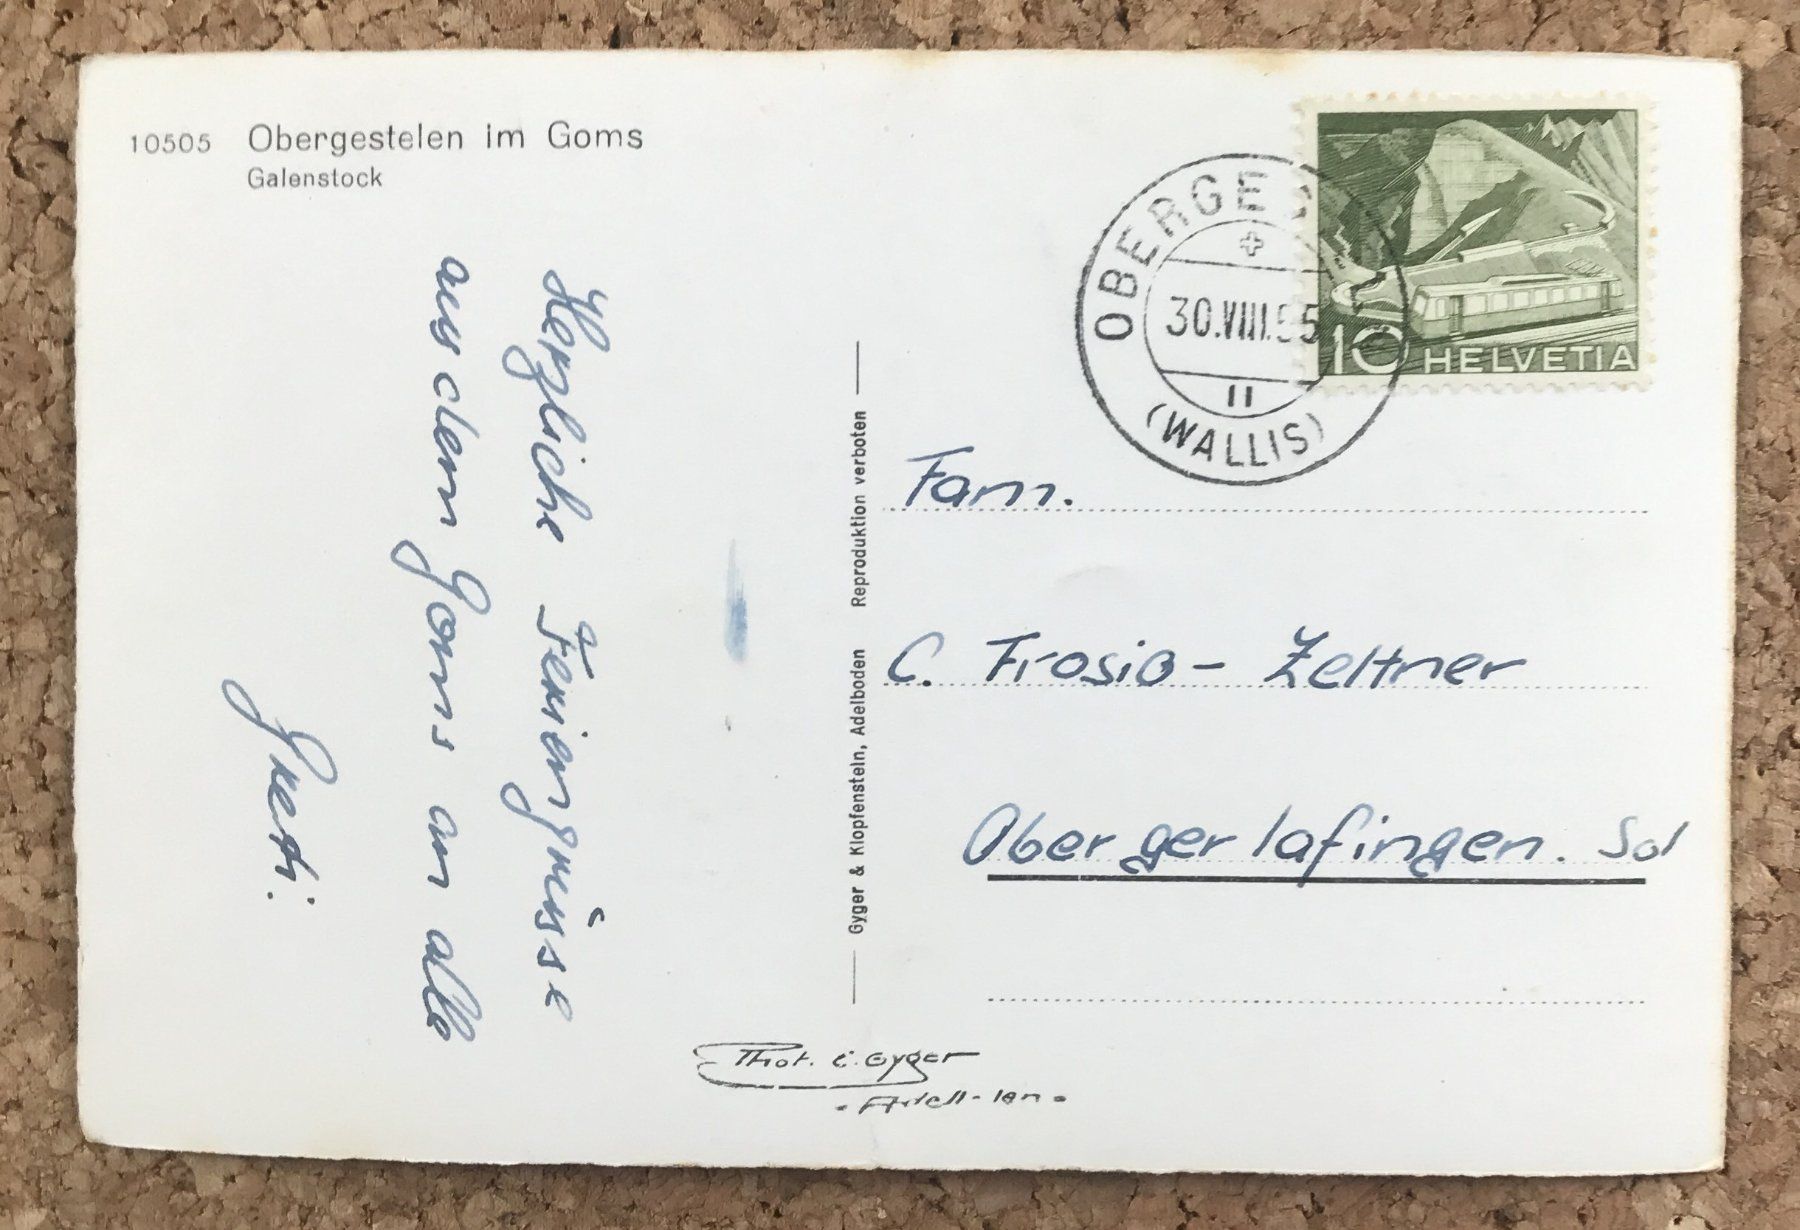 10505 Obergestelen im Goms
Galenstock
Herzliche Feriengrüsse
aus dem Goms an alle
Greti.
Gyger & Klopfenstein, Adelboden Reproduktion verboten
Phot. E. Gyger
OBERGES
30.VIII.55
11
(WALLIS)
10 HELVETIA
Fam.
C. Frosio - Zeltner
Obergerlafingen. Sol